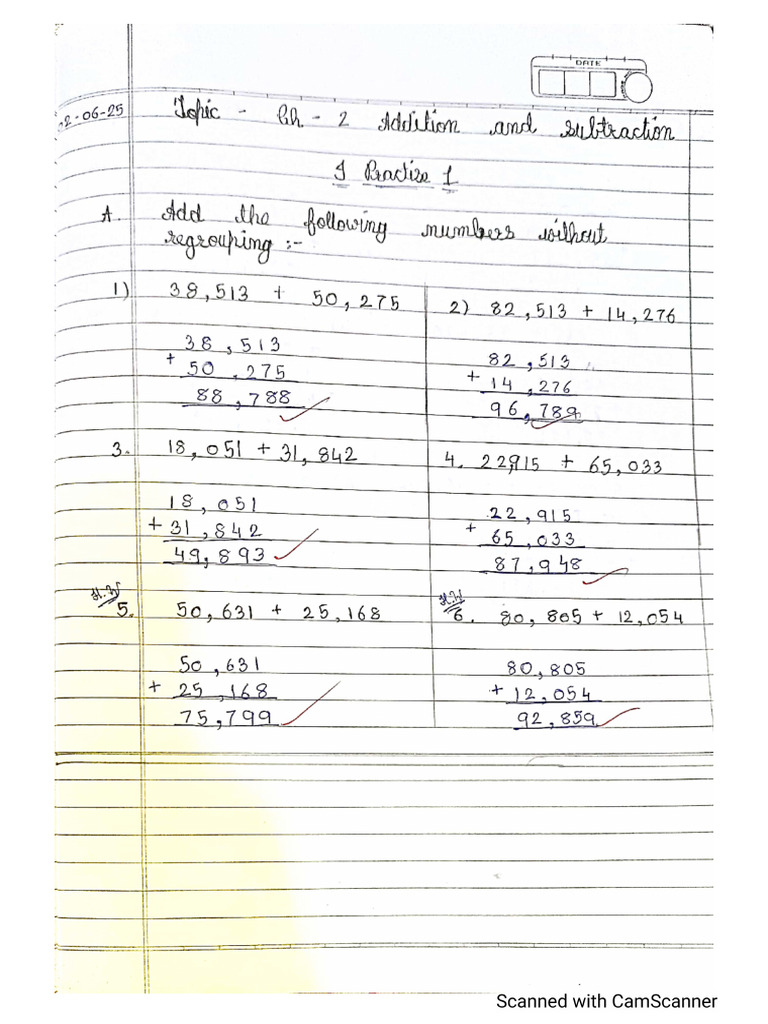 DATE
2-06-25
Topic - Ch - 2 Addition and subtraction
I Practise 1
A. Add the following numbers without
regrouping :-
1) 38,513 + 50,275
38,513
+ 50,275
88,788
2) 82,513 + 14,276
82,513
+ 14,276
96,789
3. 18,051 + 31,842
18,051
+ 31,842
49,893
4. 22,915 + 65,033
22,915
+ 65,033
87,948
H.W
5. 50,631 + 25,168
50,631
+ 25,168
75,799
H.W
6. 80,805 + 12,054
80,805
+ 12,054
92,859
Scanned with CamScanner